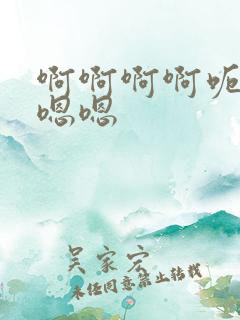 啊啊啊啊呃
嗯嗯
吴家宏
未经同意禁止转载